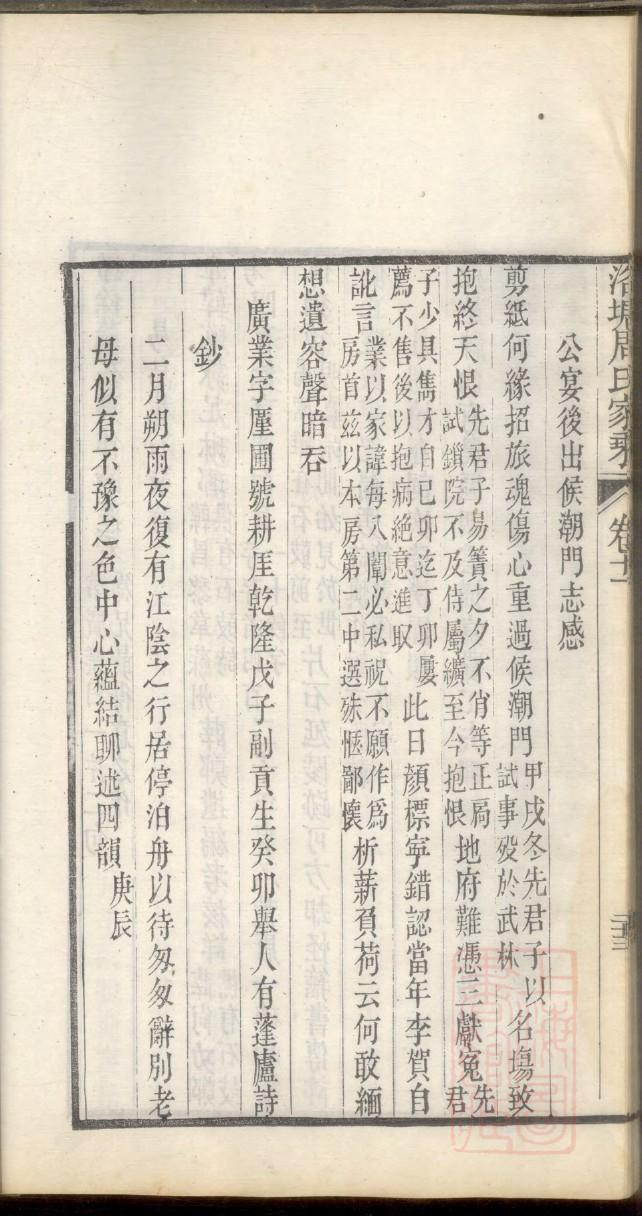 洛塘周氏家乘 卷十一
公宴後出候潮門志感
剪紙何緣招旅魂傷心重過候潮門甲戌冬先君子以試事歿於武林名塲致
抱終天恨先君子易簀之夕不肖等正扃試鎖院不及侍屬纊至今抱恨地府難憑三獻冤先君
子少具雋才自己卯迄丁卯屢薦不售後以抱病絕意進取此日顏標寧錯認當年李賀自
訛言業以家諱每入闈必私祝不願作為房首茲以本房第二中選殊愜鄙懷析薪負荷云何敢緬
想遺容聲暗吞
廣業字厪圃號耕厓乾隆戊子副貢生癸卯舉人有蓬廬詩
鈔
二月朔雨夜復有江陰之行居停泊舟以待匆匆辭別老
母似有不豫之色中心蘊結聊述四韻庚辰